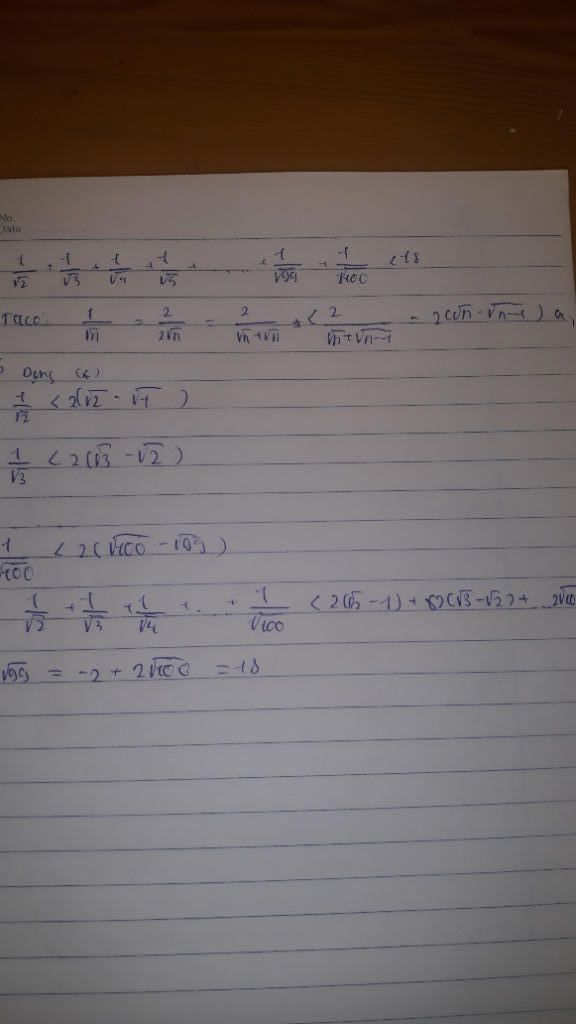 No.
Date
1/√2 + 1/√3 + 1/√4 + 1/√5 + ..... + 1/√99 + 1/√100 < 18
Taco: 1/√n = 2/2√n = 2/√n+√n < 2/√n+√n-1 = 2(√n - √n-1)
Dạng (*)
1/√2 < 2(√2 - √1)
1/√3 < 2(√3 - √2)
1/√100 < 2(√100 - √99)
1/√2 + 1/√3 + 1/√4 + ... + 1/√100 < 2(√2 - 1) + 2(√3 - √2) + ...2√100
√99 = -2 + 2√100 = 18